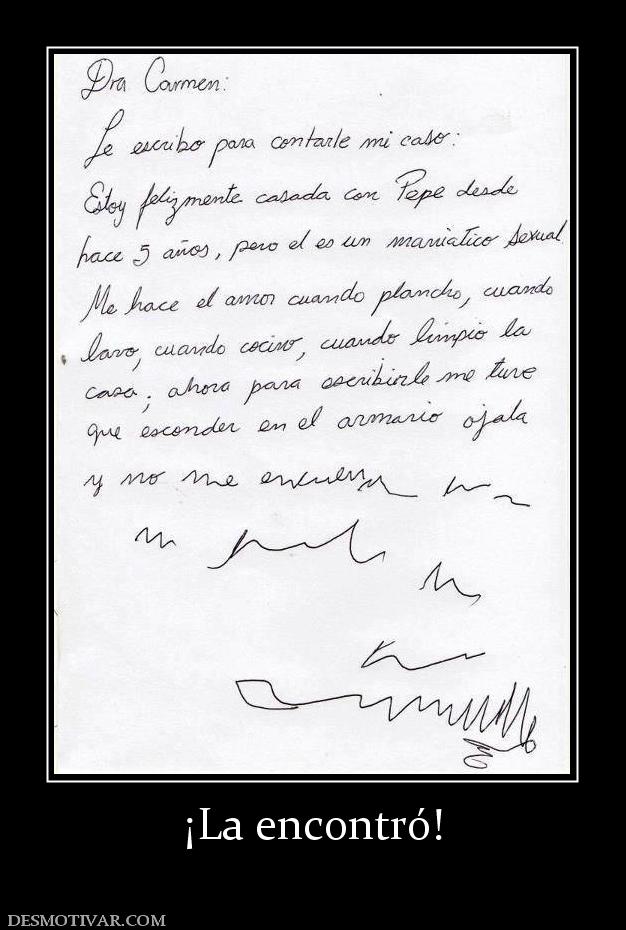 Dra Carmen:
Le escribo para contarle mi caso:
Estoy felizmente casada con Pepe desde
hace 5 años, pero el es un maniatico sexual
Me hace el amor cuando plancho, cuando
lavo, cuando cocino, cuando limpio la
casa; ahora para escribirle me tuve
que esconder en el armario ojala
y no me
¡La encontró!
DESMOTIVAR.COM